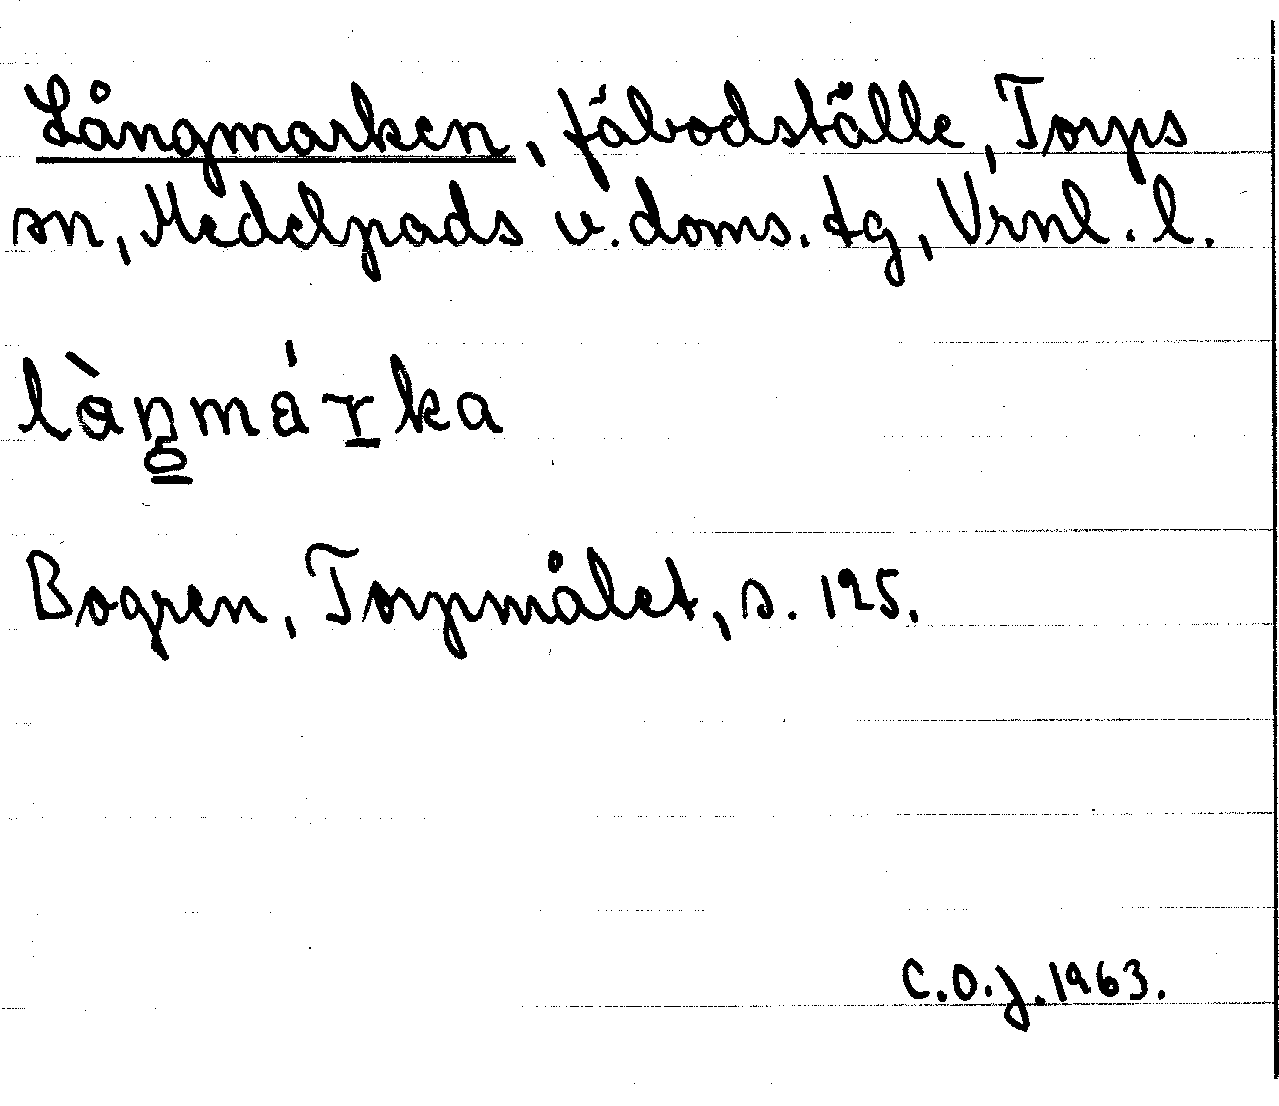 Långmarken, fäbodställe, Torps
sn, Medelpads v. doms. tg, Vrnl. l.
làŋmárka
Bogren, Torpmålet, s. 125.
C.O.J. 1963.